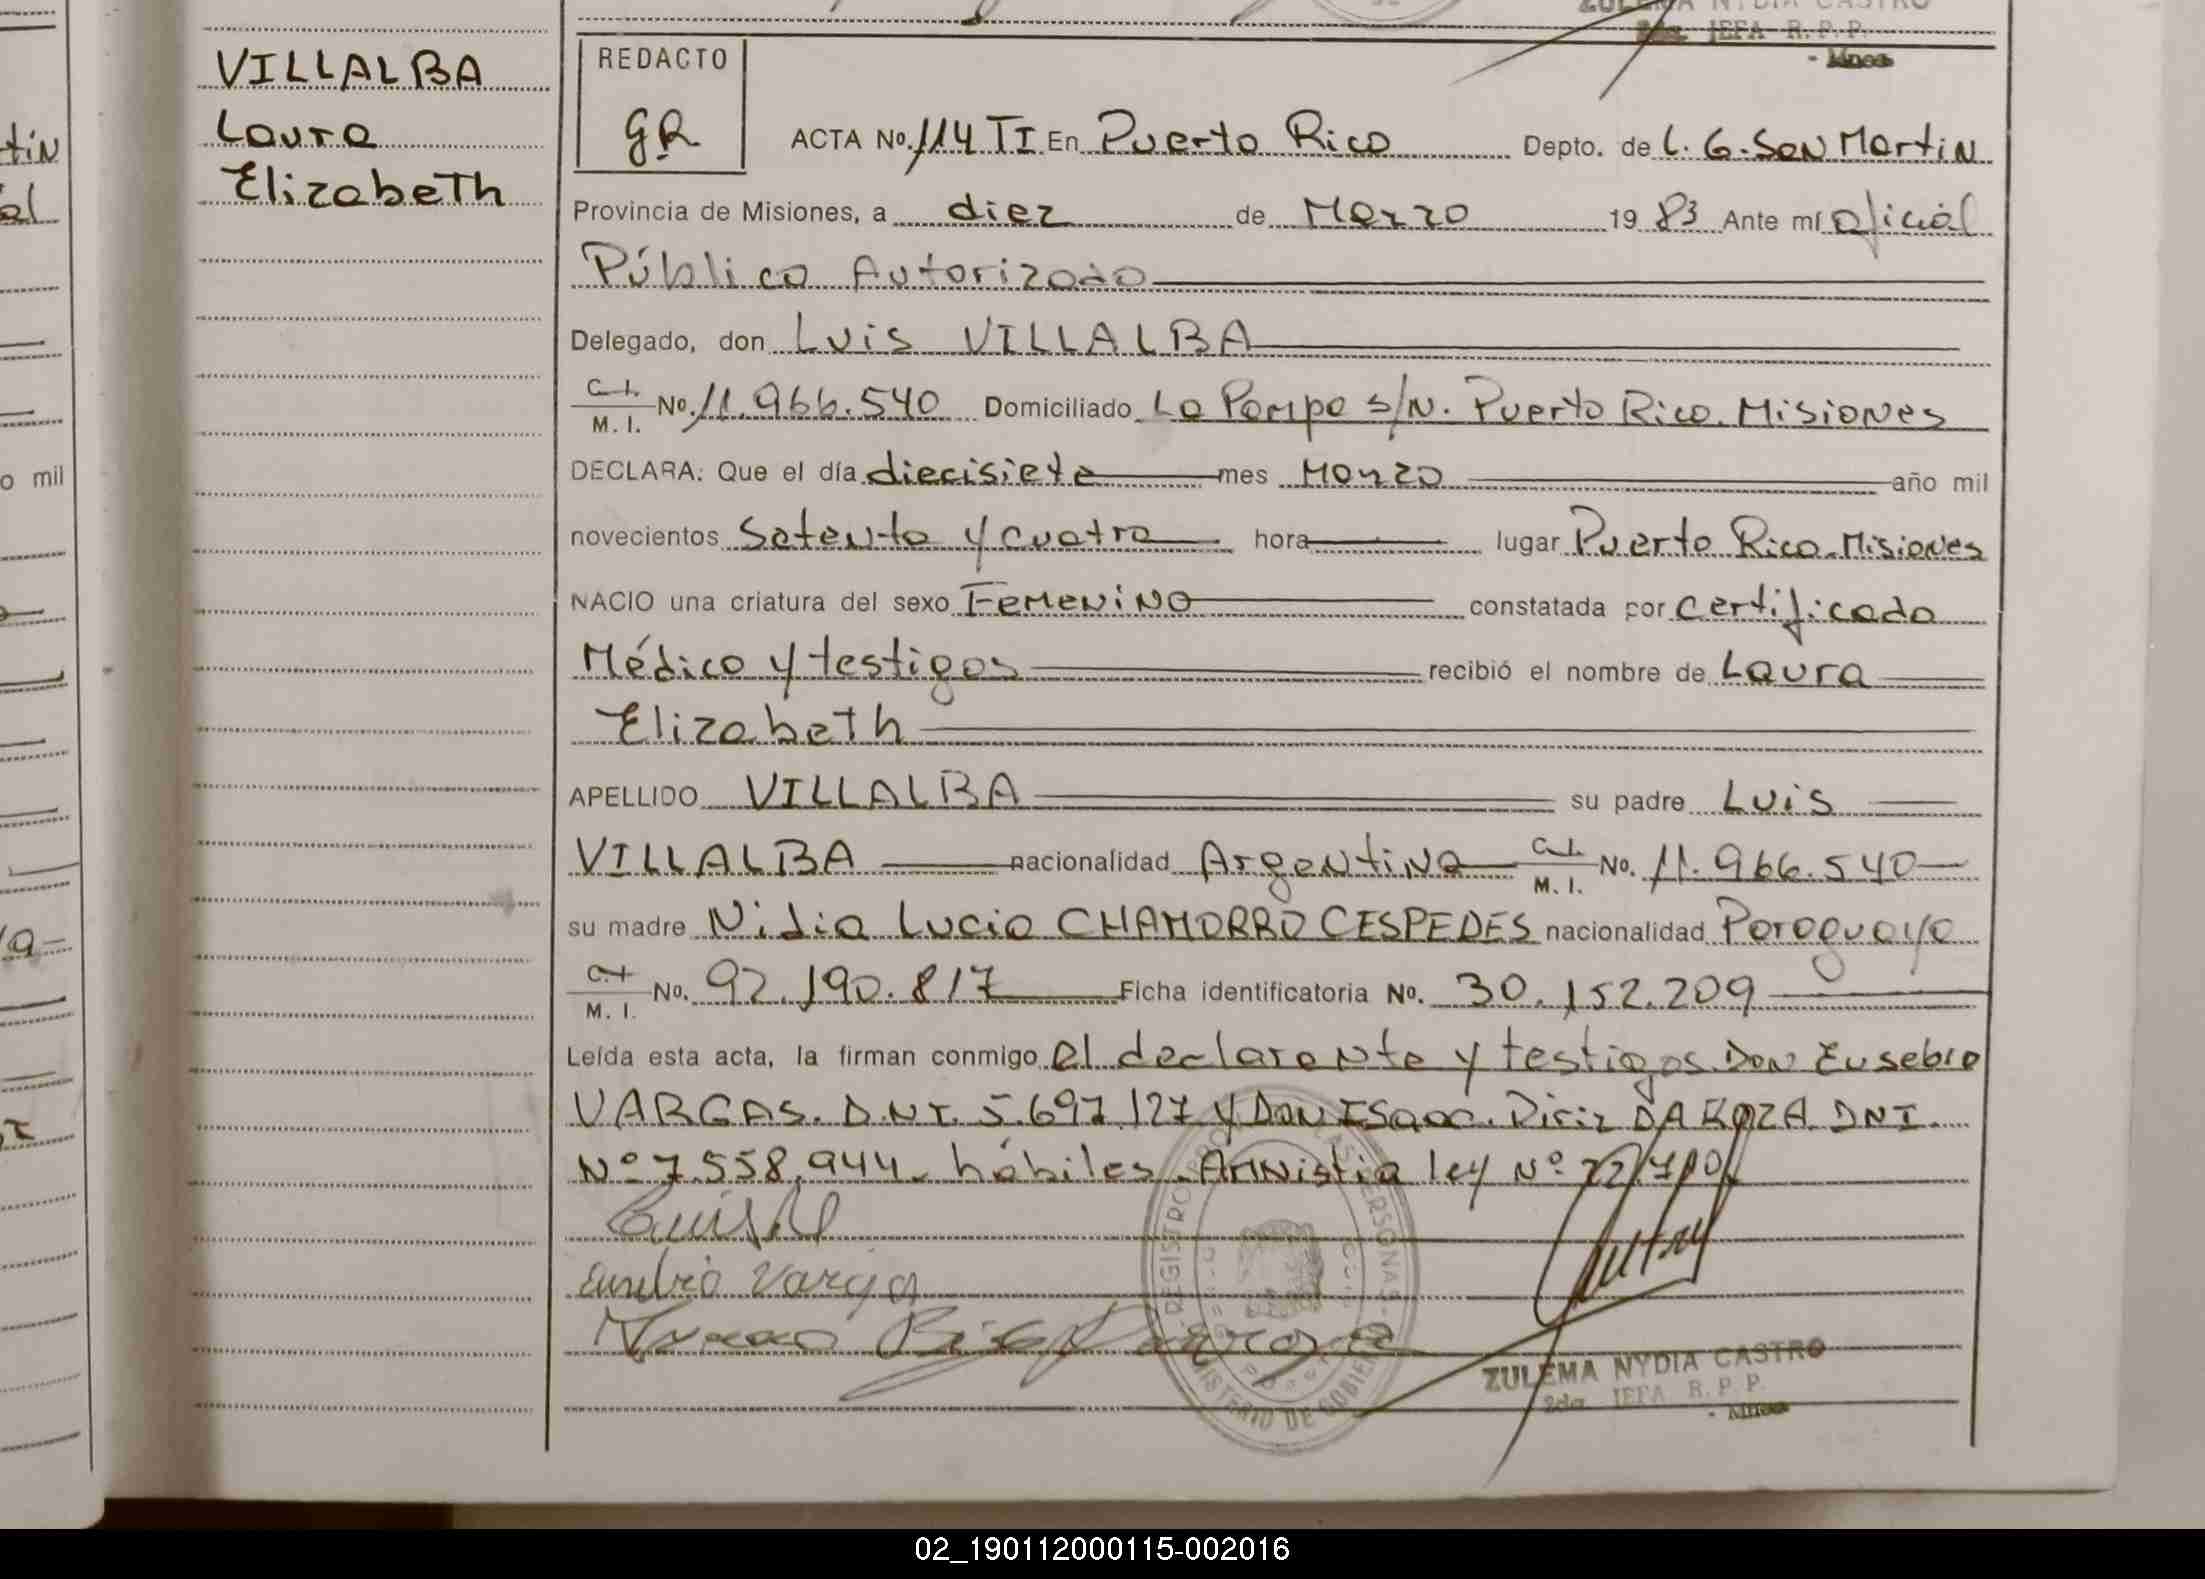 ZULEMA NYDIA CASTRO
2da. JEFA R. P. P.
VILLALBA
Laura
Elizabeth
tín
al
o mil
REDACTO
GR
ACTA No. 114 TI En Puerto Rico Depto. de L. G. San Martin
Provincia de Misiones, a diez de Marzo 19 83 Ante mí oficial
Público Autorizado
Delegado, don Luis VILLALBA
C. I. / M. I. No. 11.966.540 Domiciliado La Pampa s/N. Puerto Rico. Misiones
DECLARA: Que el día diecisiete mes Marzo año mil
novecientos Setenta y cuatro hora lugar Puerto Rico. Misiones
NACIO una criatura del sexo Femenino constatada por certificado
Médico y testigos recibió el nombre de Laura
Elizabeth
APELLIDO VILLALBA su padre Luis
VILLALBA nacionalidad Argentina C. I. / M. I. No. 11.966.540
su madre Nidia Lucia CHAMORRO CESPEDES nacionalidad Paraguaya
C. I. / M. I. No. 92.190.817 Ficha identificatoria No. 30.152.209
Leída esta acta, la firman conmigo el declarante y testigos Don Eusebio
VARGAS. D.N.I. 5.697.127 y Don ISaac. Diriz DA ROZA. DNI.
Nº 7.558.944. hábiles. Amnistia ley Nº 22.710
Eusebio Varga
REGISTRO PERSONAS
MINISTERIO DE GOBIERNO
ZULEMA NYDIA CASTRO
2da. JEFA R. P. P.
02_190112000115-002016